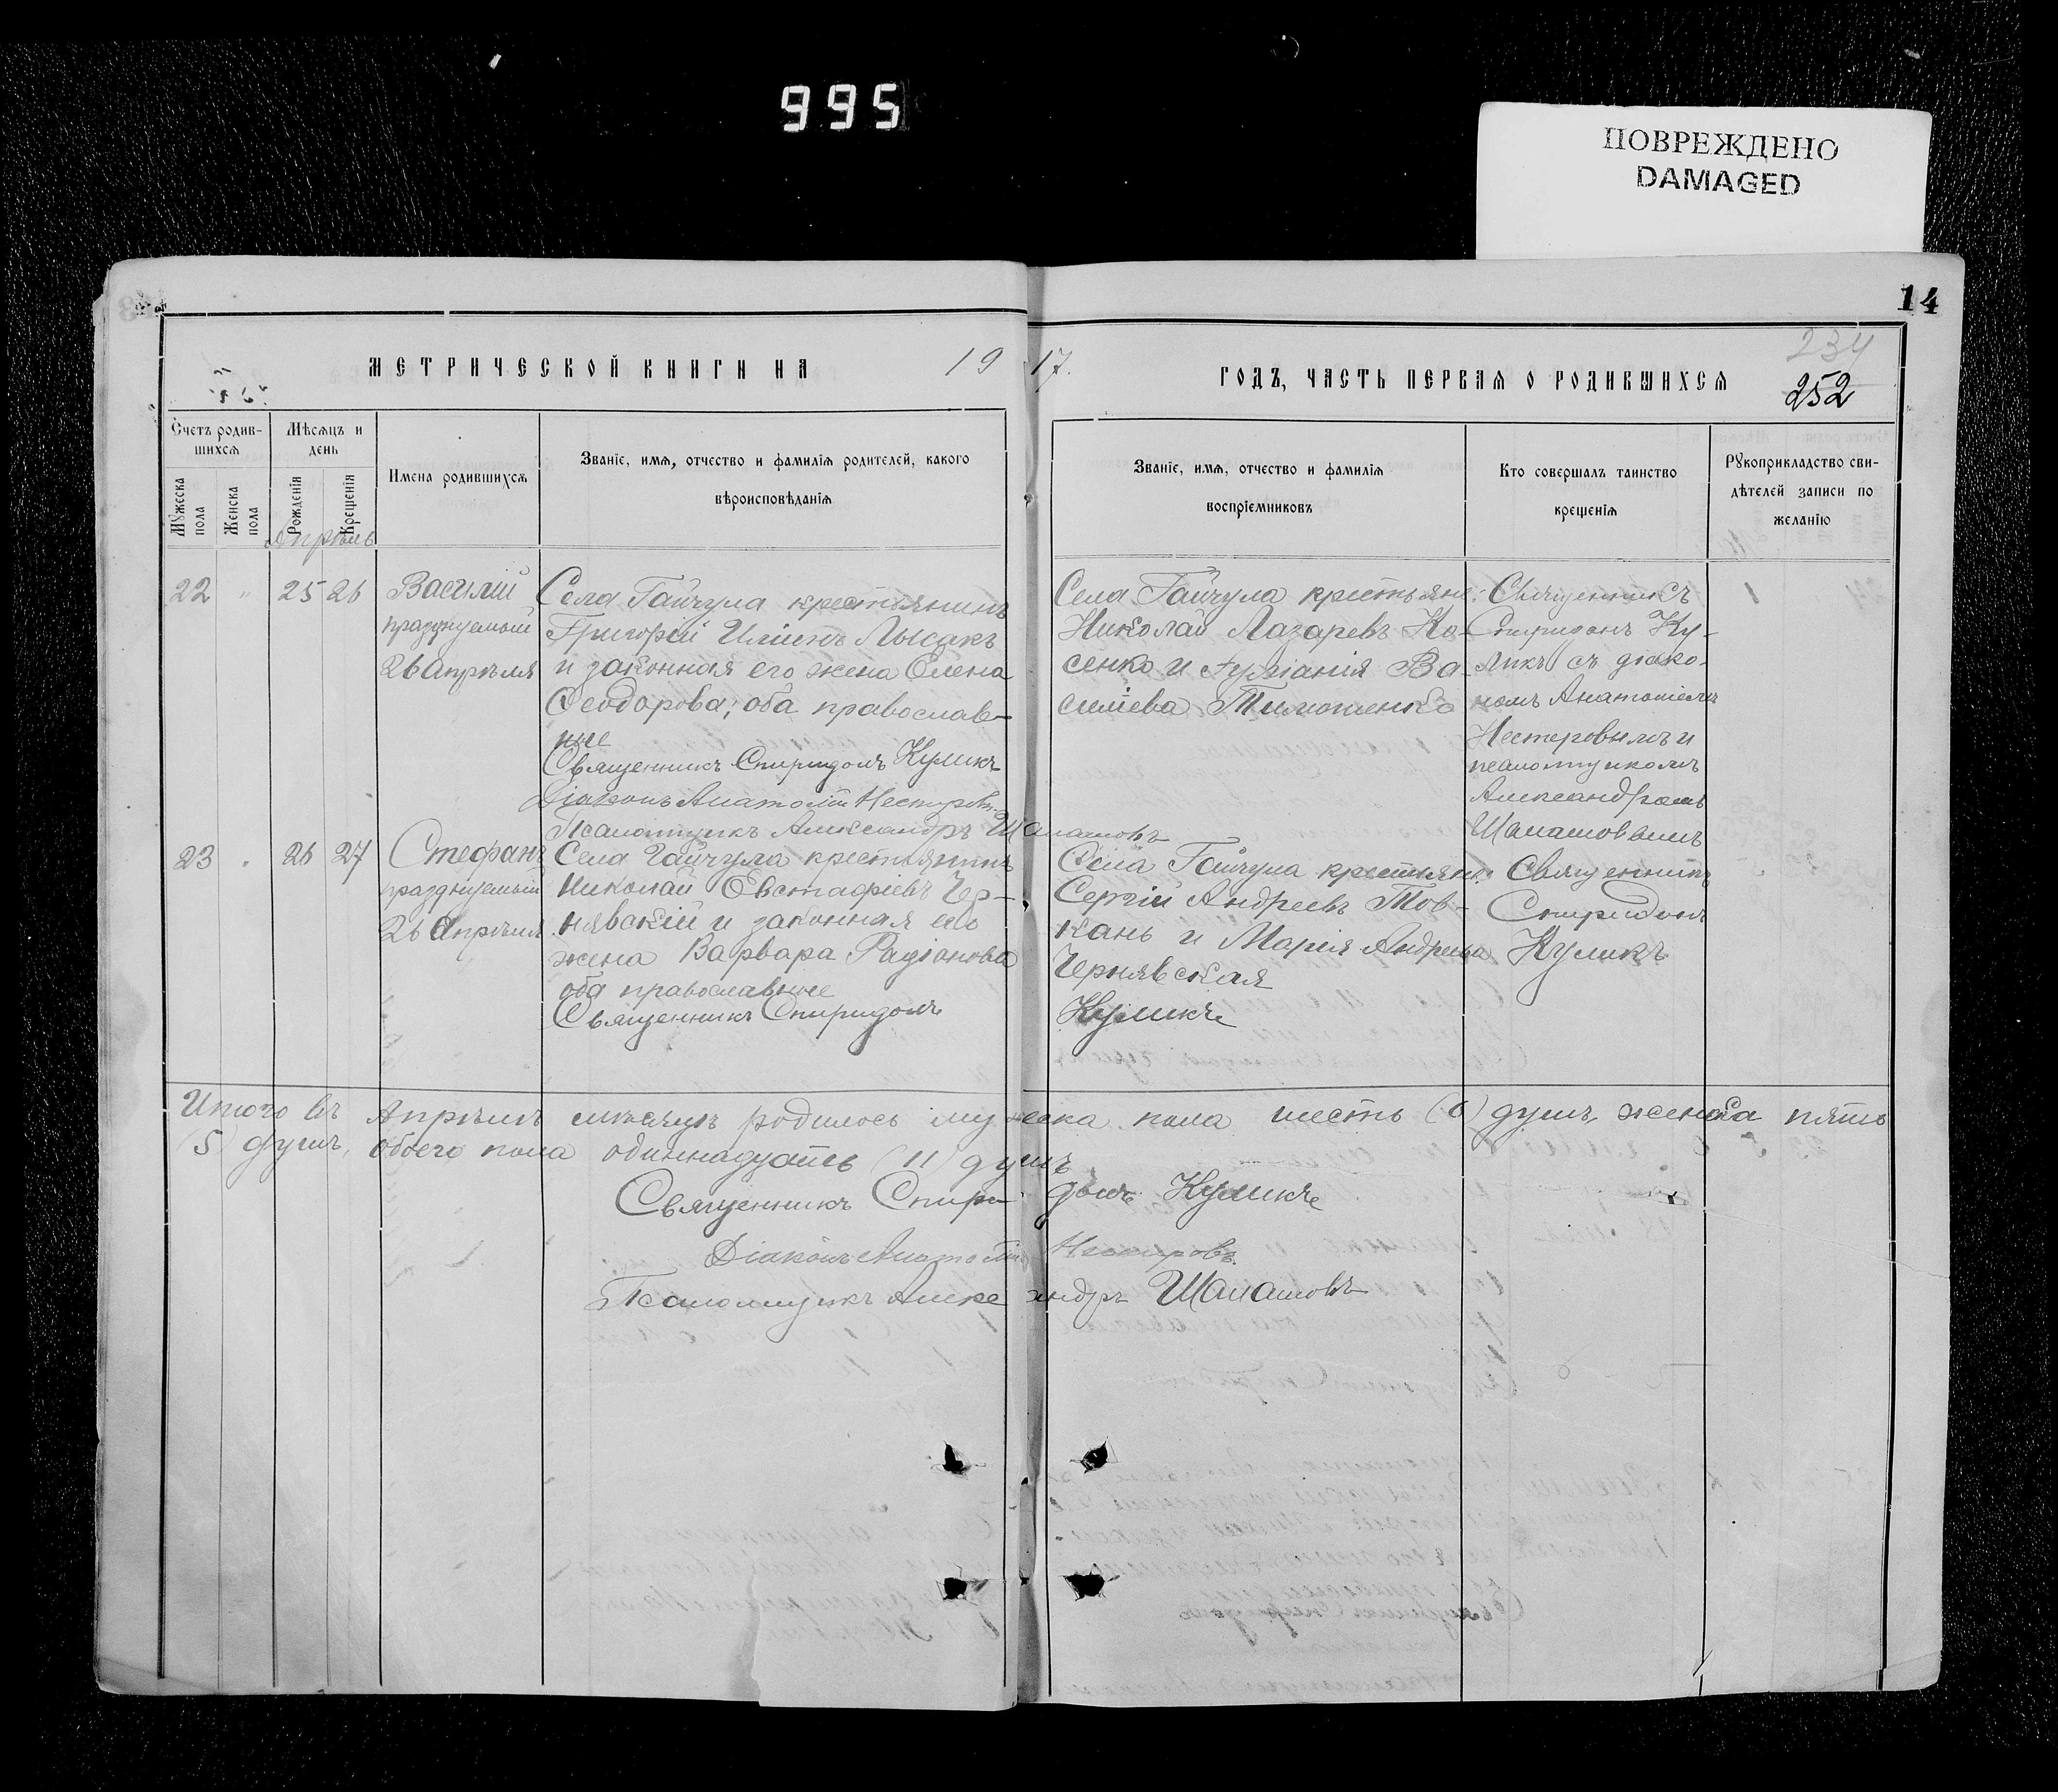 995
ПОВРЕЖДЕНО
DAMAGED
14
МЕТРИЧЕСКОЙ КНИГИ НА 19
17. ГОДЪ, ЧАСТЬ ПЕРВАЯ О РОДИВШИХСЯ
234
252
Счетъ родив-
шихся
Мужеска пола
Женска пола
Мѣсяцъ и
день
Рожденія
Крещенія
Имена родившихся
Званіе, имя, отчество и фамилія родителей, какого
вѣроисповѣданія
Званіе, имя, отчество и фамилія
воспріемниковъ
Кто совершалъ таинство
крещенія
Рукоприкладство сви-
дѣтелей записи по
желанію
Апрѣль
22 " 25 26
Василій
празднуемый
26 Апрѣля
Села Гайчула крестьянинъ
Григорій Иліинъ Лысакъ
и законная его жена Елена
Ѳеодорова; оба православ-
ные
Священникъ Спиридонъ Куликъ
Діаконъ Анатолій Нестеровъ
Псаломщикъ Александръ Шалашовъ
Села Гайчула крестьяне:
Николай Лазаревъ Ко-
сенко и Ва-
силіева Тимошенко
Священникъ
Спиридонъ Ку-
ликъ съ діако-
номъ Анатоліемъ
Нестеровымъ и
псаломщикомъ
Александромъ
Шалашовымъ
23 " 26 27
Стефанъ
празднуемый
26 Апрѣля
Села Гайчула крестьянинъ
Николай Евстафіевъ Чер-
нявскій и законная его
жена Варвара Радіонова
оба православные
Священникъ Спиридонъ Куликъ
Села Гайчула крестьяне:
Сергій Андреевъ Тов-
кань и Марія Андреева
Чернявская
Священникъ
Спиридонъ
Куликъ
Итого въ Апрѣлѣ мѣсяцѣ родилось мужеска пола шесть (6) душъ, женска пять
(5) душъ, обоего пола одиннадцать (11) душъ
Священникъ Спиридонъ Куликъ
Діаконъ Анатолій Нестеровъ
Псаломщикъ Александръ Шалашовъ